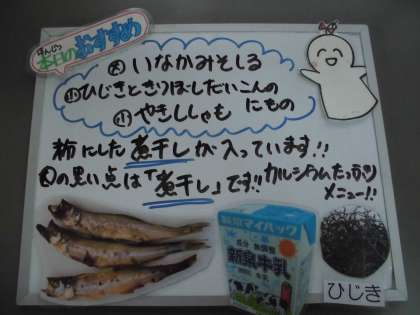 ほんじつ
本日のおすすめ
大 いなかみそしる
小 ひじきときりぼしだいこんの
にもの
小 やきししゃも
粉にした煮干しが入っています!!
大の黒い点は「煮干し」です!!
カルシウムたっぷり
メニュー!!
新泉マイパック
成分無調整
新泉牛乳
ひじき